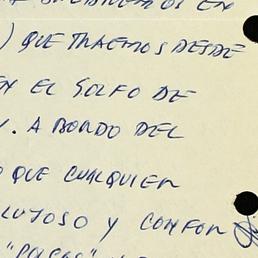 EN
) QUE TRAEMOS DESDE
EN EL GOLFO DE
. A BORDO DEL
QUE CUALQUIER
LUJOSO Y CONFOR